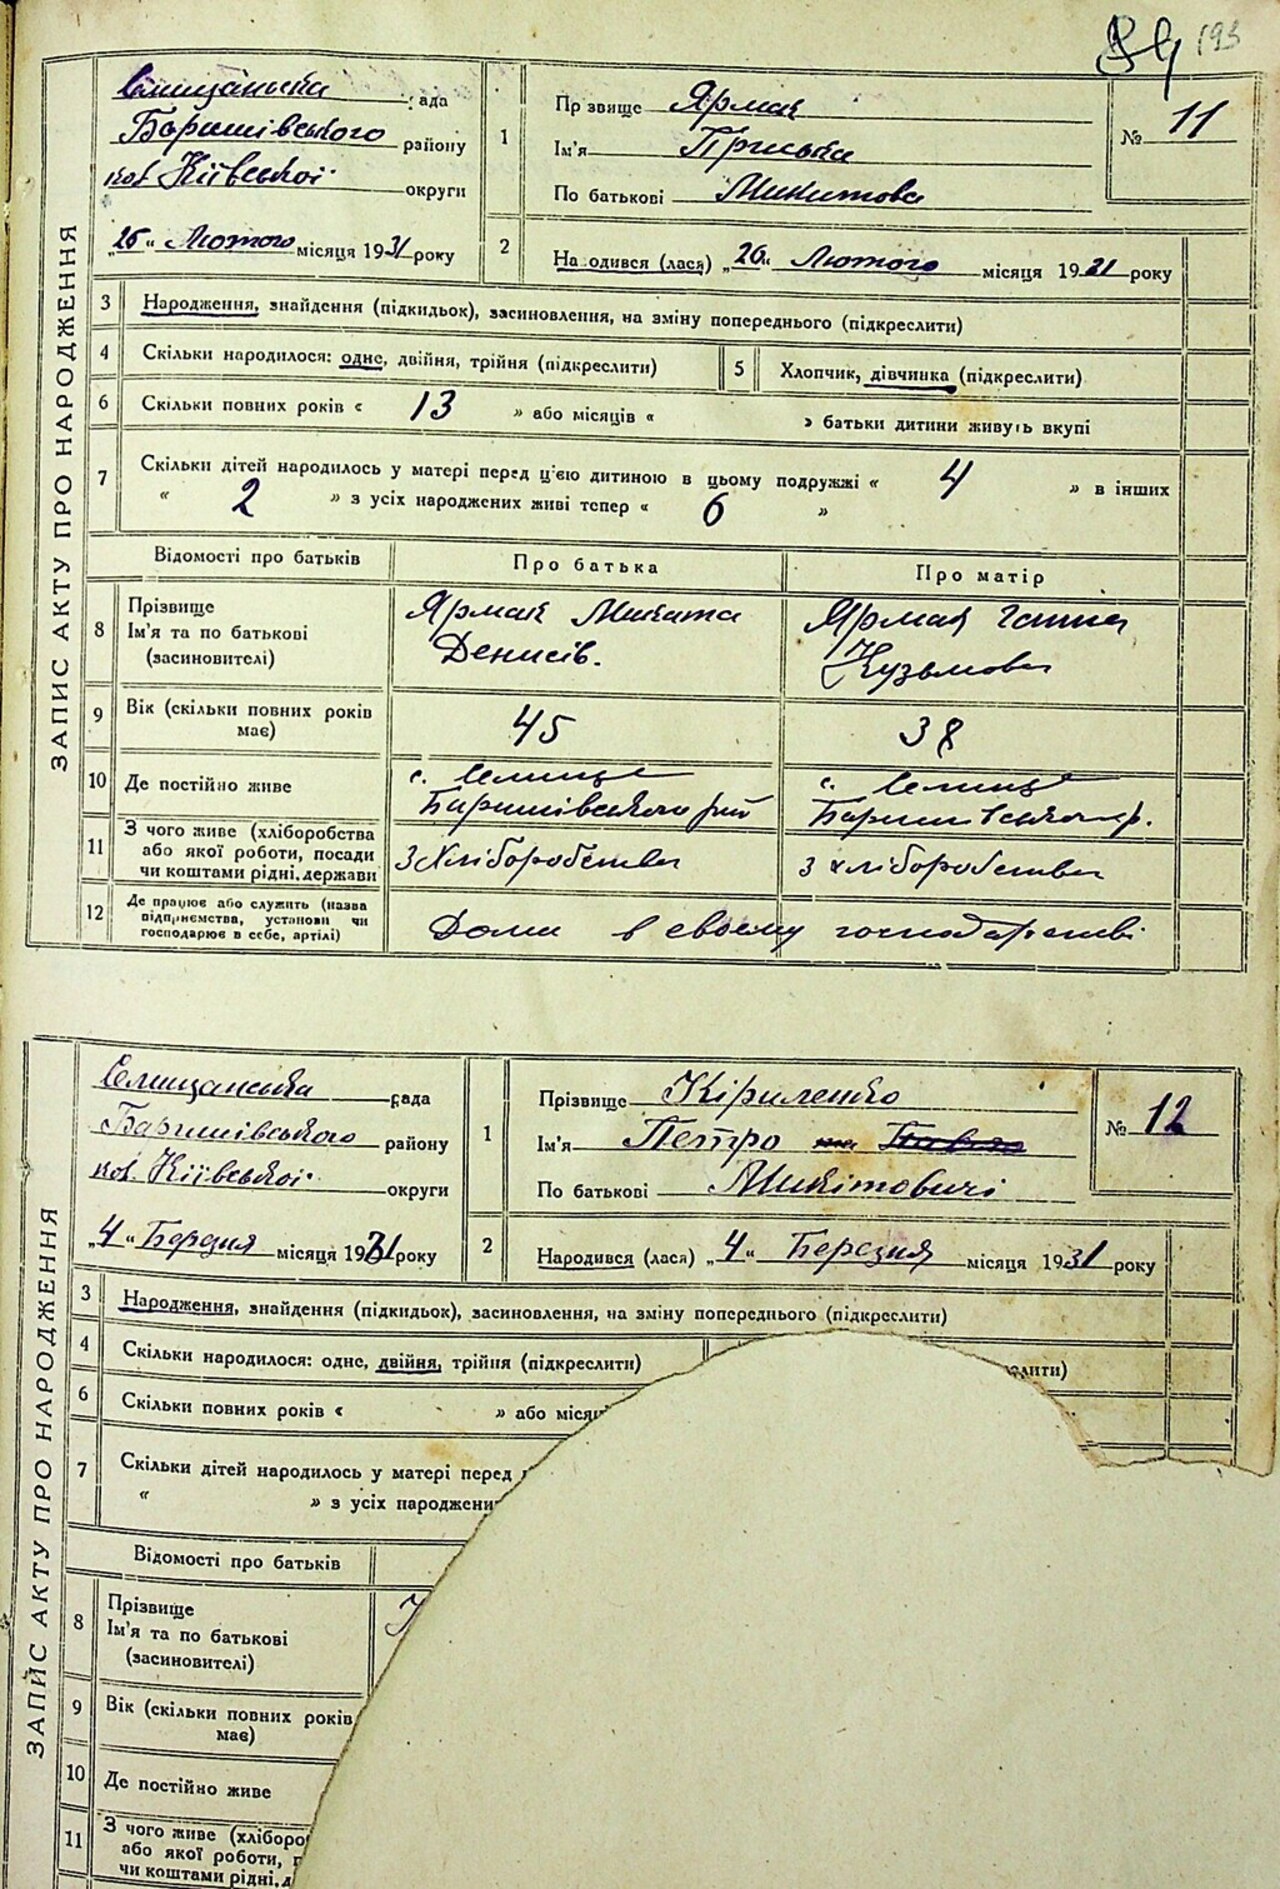 193
ЗАПИС АКТУ ПРО НАРОДЖЕННЯ
Селищанська рада
Баришівського району
кол. Київської округи
"26" Лютого місяця 1931 року
1
Прізвище Ярмак
Ім'я Приська
По батькові Микитовa
№ 11
2
Народився (лася) "26" Лютого місяця 1931 року
3 Народження, знайдення (підкидьок), засиновлення, на зміну попереднього (підкреслити)
4 Скільки народилося: одне, двійня, трійня (підкреслити)
5 Хлопчик, дівчинка (підкреслити)
6 Скільки повних років « 13 » або місяців « » батьки дитини живуть вкупі
7 Скільки дітей народилось у матері перед ц'єю дитиною в цьому подружжі « 4 » в інших
« 2 » з усіх народжених живі тепер « 6 »
Відомості про батьків Про батька Про матір
8 Прізвище
Ім'я та по батькові
(засиновителі)
Ярмак Микита
Денисів.
Ярмак Ганна
Кузьмовна
9 Вік (скільки повних років
має)
45
38
10 Де постійно живе
с. Селище
Баришівського рай
с. Селище
Баришівського р.
11 З чого живе (хліборобства
або якої роботи, посади
чи коштами рідні, держави
З Хліборобства
з хліборобства
12 Де працює або служить (назва
підприємства, установи чи
господарює в себе, артілі)
Дома в своему господарстві
ЗАПИС АКТУ ПРО НАРОДЖЕННЯ
Селищанська рада
Баришівського району
кол. Київської округи
"4" Березня місяця 1931 року
1
Прізвище Кіриленко
Ім'я Петро та Павло
По батькові Микітовичі
№ 12
2
Народився (лася) "4" Березня місяця 1931 року
3 Народження, знайдення (підкидьок), засиновлення, на зміну попереднього (підкреслити)
4 Скільки народилося: одне, двійня, трійня (підкреслити)
6 Скільки повних років « » або місяц
7 Скільки дітей народилось у матері перед
« » з усіх народжени
Відомості про батьків
8 Прізвище
Ім'я та по батькові
(засиновителі)
9 Вік (скільки повних років
має)
10 Де постійно живе
11 З чого живе (хліборо
або якої роботи, п
чи коштами рідні, д